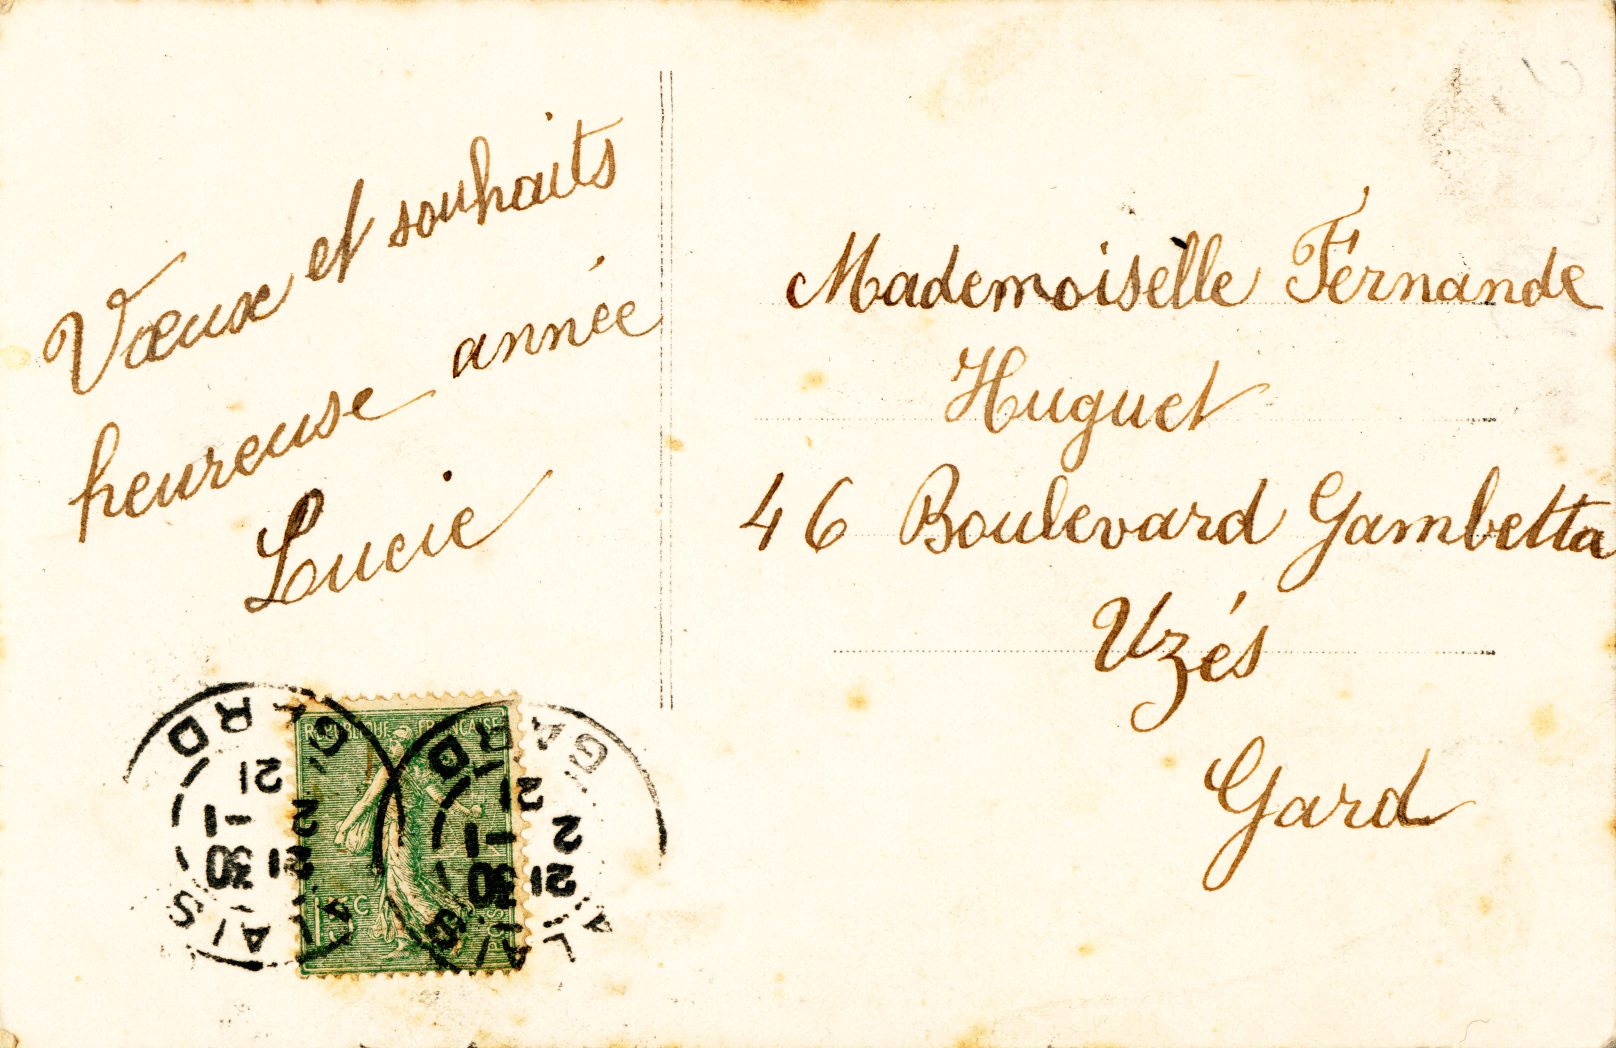 Vœux et souhaits
heureuse année
Lucie
Mademoiselle Fernande
Huguet
46 Boulevard Gambetta
Uzés
Gard
REPUBLIQUE FRANÇAISE
15 c
POSTES
ALAIS
21 30
2 -1
21
GARD
ALAIS
21 30
2 -1
21
GARD